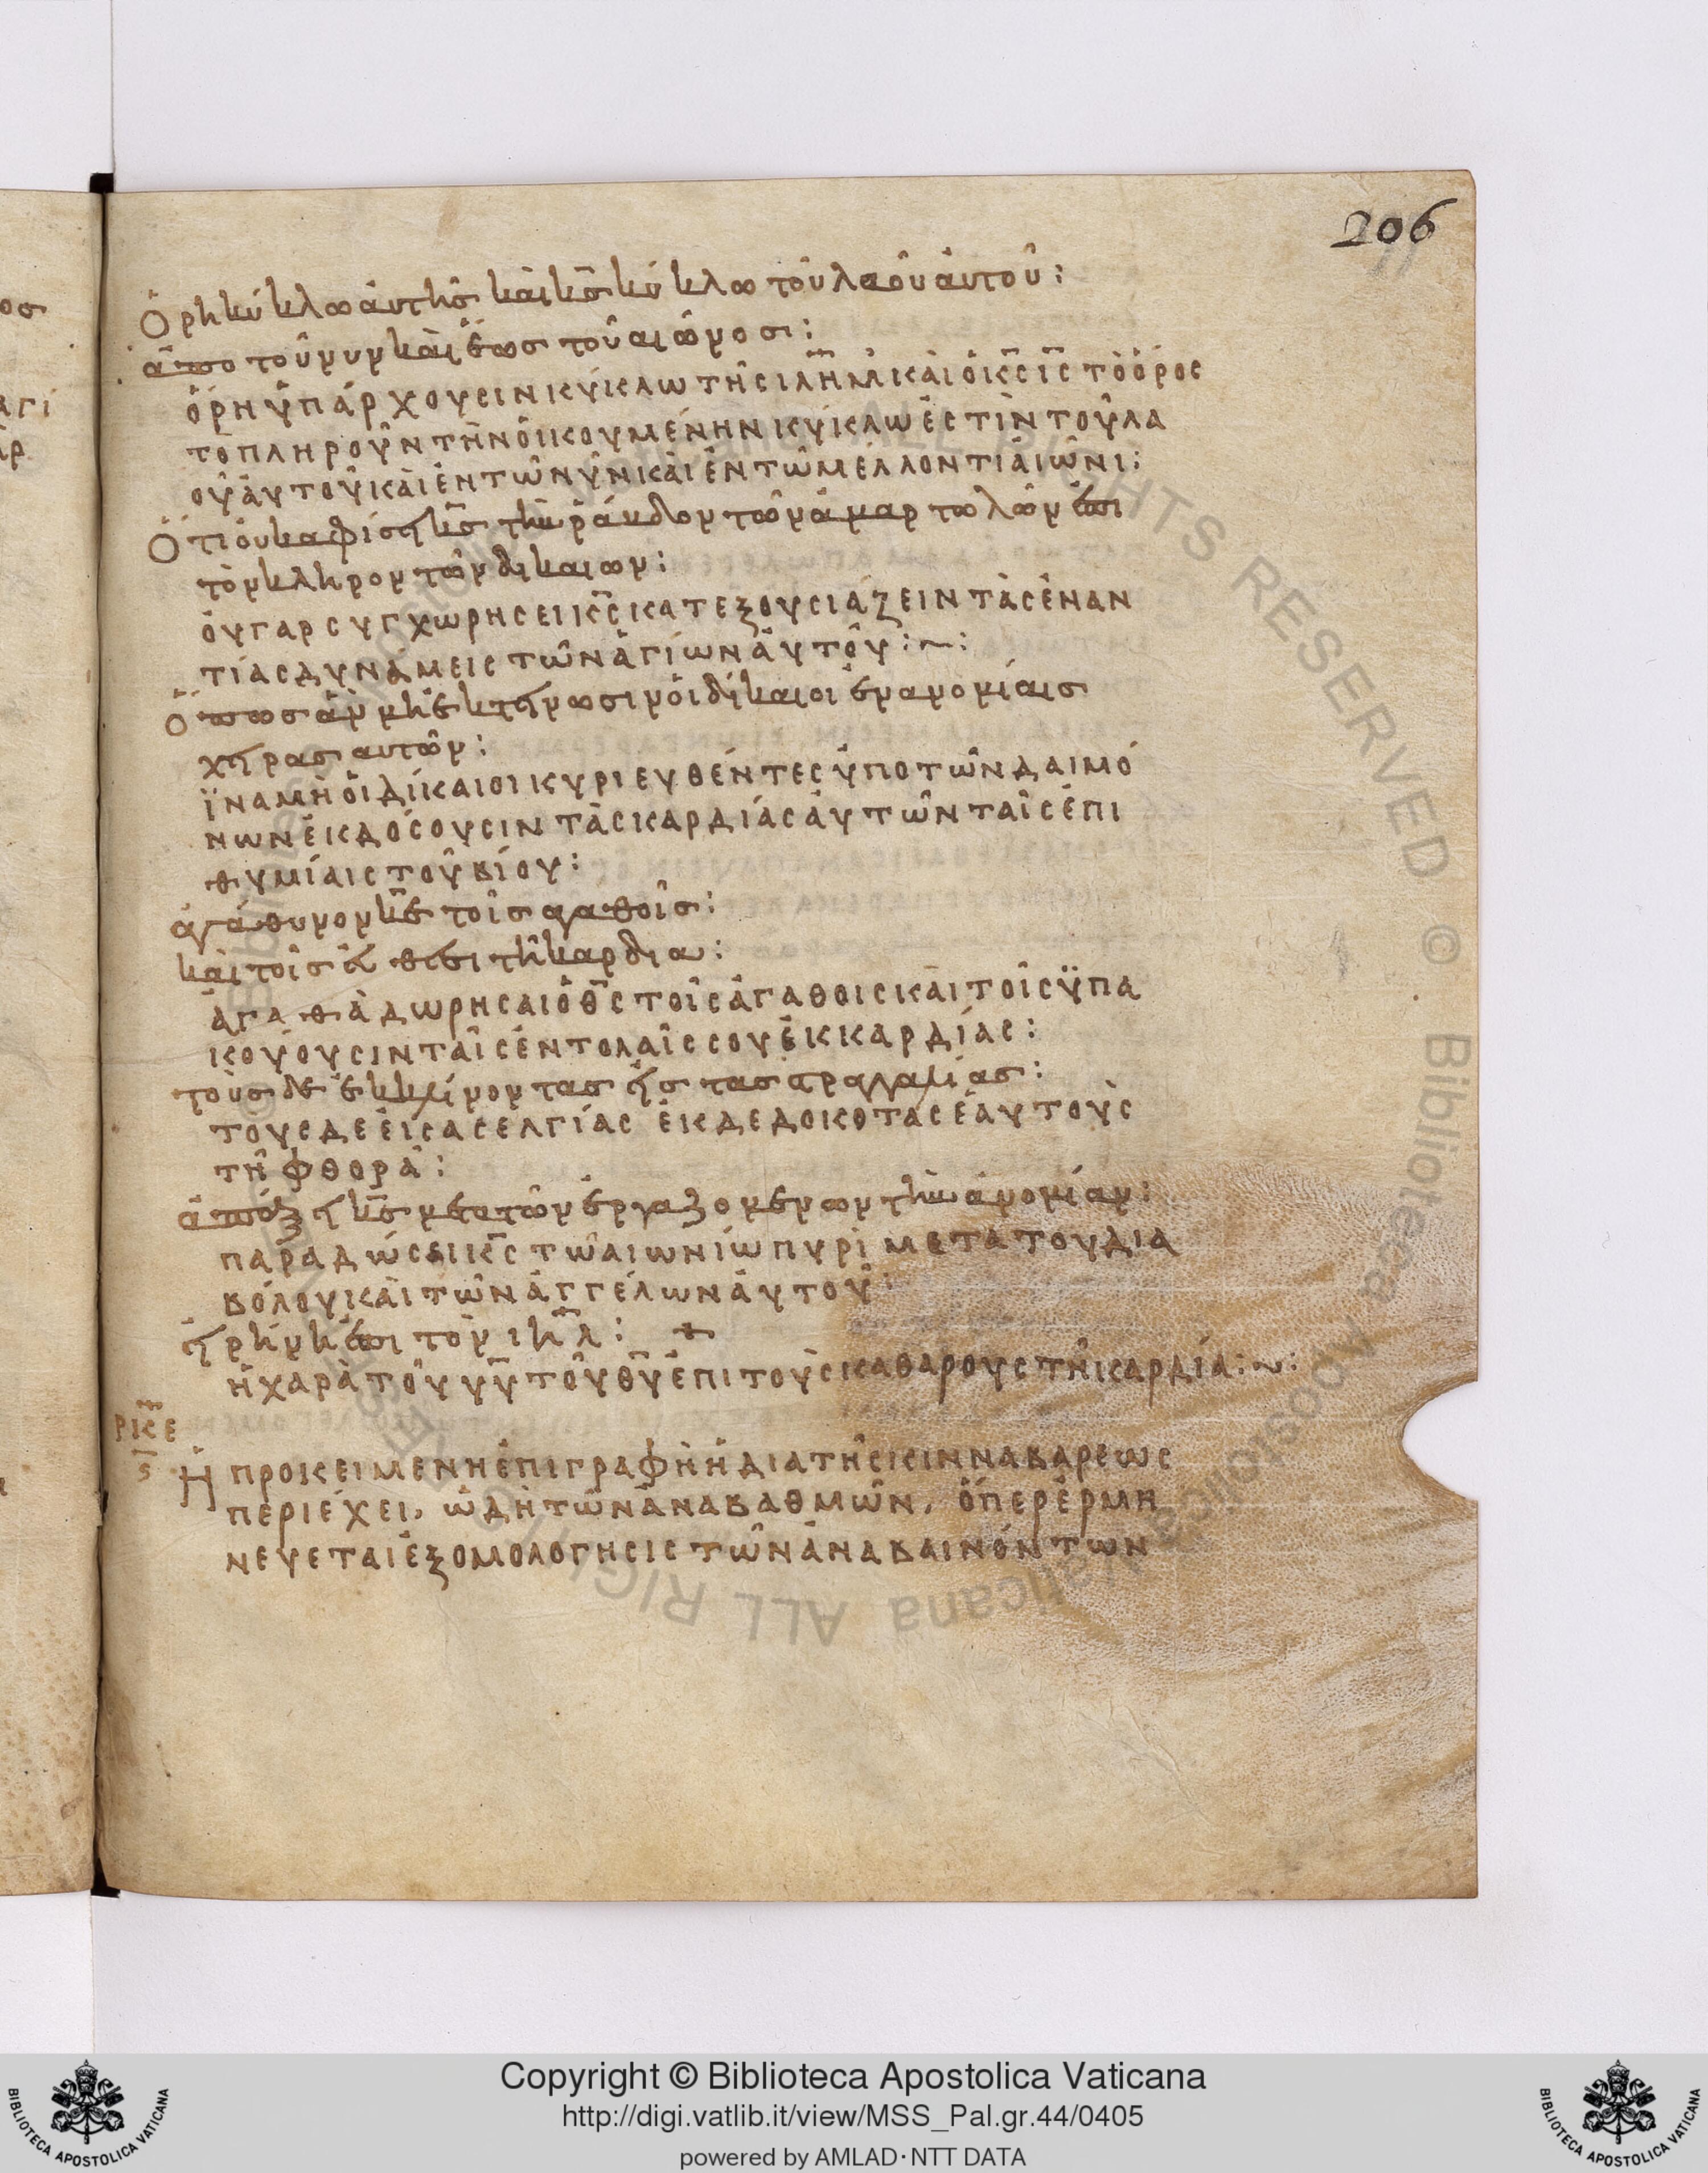 206
Ὄρη κύκλω ἀυτῆς καὶ κ̅ς̅ κύκλω τοῦ λαοῦ ἀυτοῦ:
ἀπο τοῦ νυν καὶ ἕως τοῦ αἰῶνοσ:
ὄρη ὑπάρχουσιν κύκλω τῆς ι̅λ̅η̅μ̅ καὶ ὁ κ̅ς̅ ι̅ς̅ τὸ ὄρος
τὸ πληροῦν τὴν ὀικουμένην κύκλω ἐστὶν τοῦ λα
οῦ ἀυτοῦ καὶ ἐν τῶ νῦν καὶ ἐν τῶ μέλλοντι ἀιῶνι:
Ὅτι ὀυκ αφίσει κ̅ς̅ τὴν ῥάυδον τῶν ἁμαρτωλῶν ἐπι
τὸν κλῆρον τῶν δικαιων:
ὀυ γαρ συγχωρησει κ̅ς̅ κατεξουσιάζειν τὰς ἐναν
τίας δυνάμεις τῶν ἁγίων ἀυτοῦ:~:
Ὅπως ἂν μὴ ἐκτείνωσιν ὁι δίκαιοι ἐν ανομίαις
χεῖρας αυτῶν:
ἵνα μὴ ὁι δίκαιοι κυριευθέντες ὑπο τῶν δαιμό
νων ἐκδόσουσιν τὰς καρδίας ἀυτῶν ταῖς ἐπι
θυμίαις τοῦ βίου:
ἀγάθυνον κ̅ε̅ τοῖς αγαθοῖς:
καὶ τοῖς ἐυθέσι τῆ καρδια:
ἀγαθὰ δωρησαι ὁ θ̅ς̅ τοῖς ἀγαθοις καὶ τοῖς ὑπα
κούουσιν ταῖς ἐντολαῖς σου ἐκ καρδίας:
τοὺς δε ἐκκλίνοντας ἐις τας στραγαλιάς:
τους δε ἐις ασελγίας ἐκδεδοκοτας ἑαυτοὺς
τῆ φθορᾶ:
ἀπάξει κ̅ς̅ μετα τῶν ἐργαζομενων τὴν ἀνομίαν:
παραδώσει κ̅ς̅ τῶ αιωνίω πυρὶ μετὰ του δια
βόλου καὶ τῶν ἀγγέλων ἀυτοῦ:
ἐιρήνη ἐπι τὸν ι̅η̅λ̅:
ἡ χαρὰ τοῦ υ̅υ̅ τοῦ θ̅υ̅ ἐπι τοὺς καθαρους τῆ καρδία:~:
ΡΚΕ
Ϛ
Ἡ προκειμενη ἐπιγραφὴ ἡ δια τῆς κινναβαρεως
περιέχει, ὠδὴ τῶν ἀναβαθμῶν, ὅπερ ἑρμη
νευεται ἐξομολογησις τῶν ἀναβαινόντων
Copyright © Biblioteca Apostolica Vaticana
http://digi.vatlib.it/view/MSS_Pal.gr.44/0405
powered by AMLAD·NTT DATA